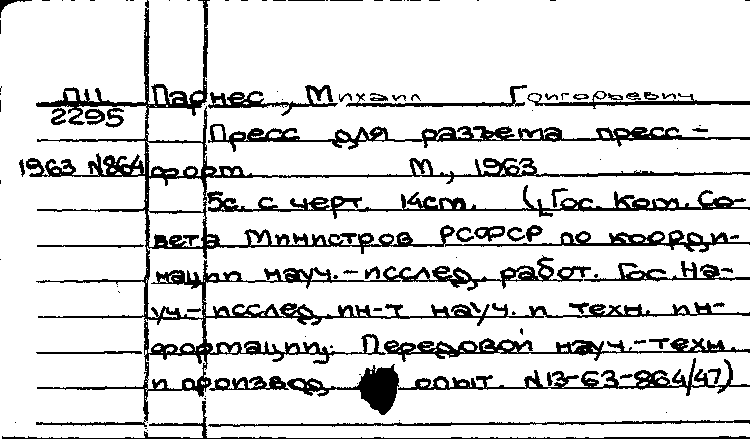 П11
2295
Парнес, Михаил Григорьевич
Пресс для разъема пресс-
1963 №864 форм. М., 1963
5с. с черт. 14см. (Гос. Ком. Со-
вета Министров РСФСР по коорди-
нации науч.-исслед. работ. Гос. На-
уч.-исслед. ин-т науч. и техн. ин-
формации. Передовой науч.-техн.
и производ. опыт. №13-63-864/47)